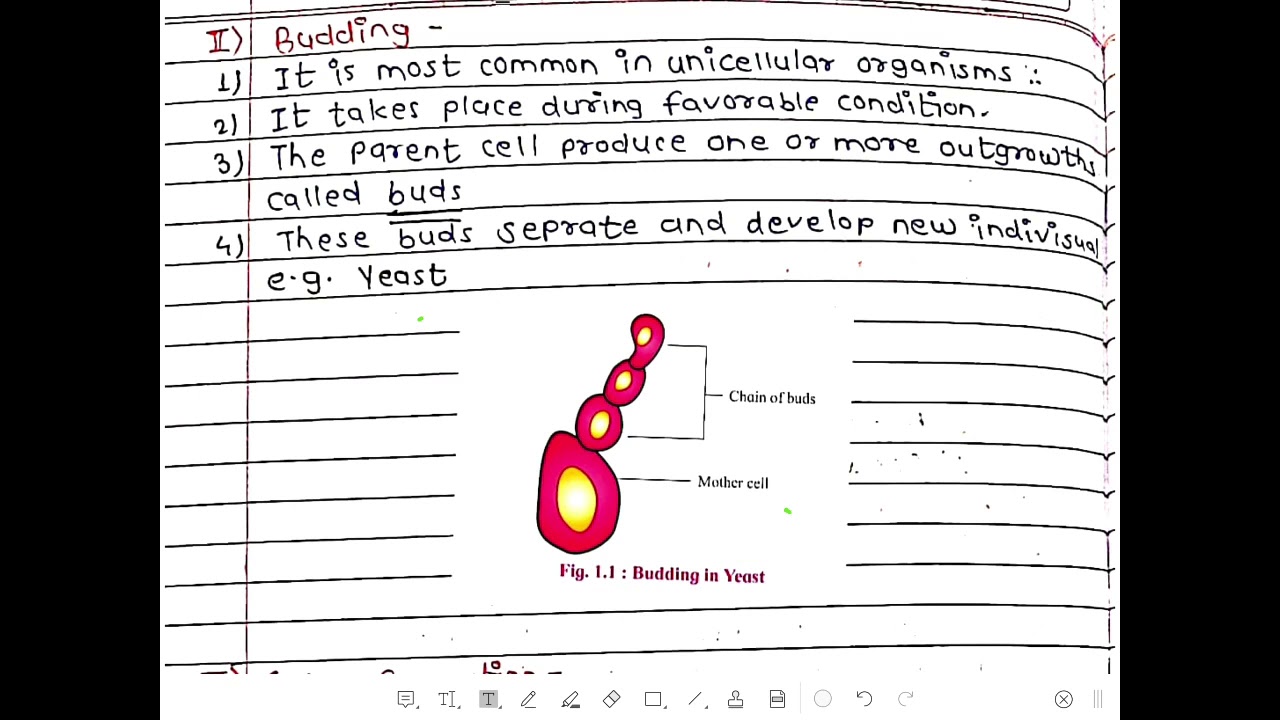 II) Budding -
1) It is most common in unicellular organisms :.
2) It takes place during favorable condition.
3) The parent cell produce one or more outgrowths
called buds
4) These buds seprate and develop new indivisual
e.g. Yeast
Chain of buds
Mother cell
Fig. 1.1 : Budding in Yeast